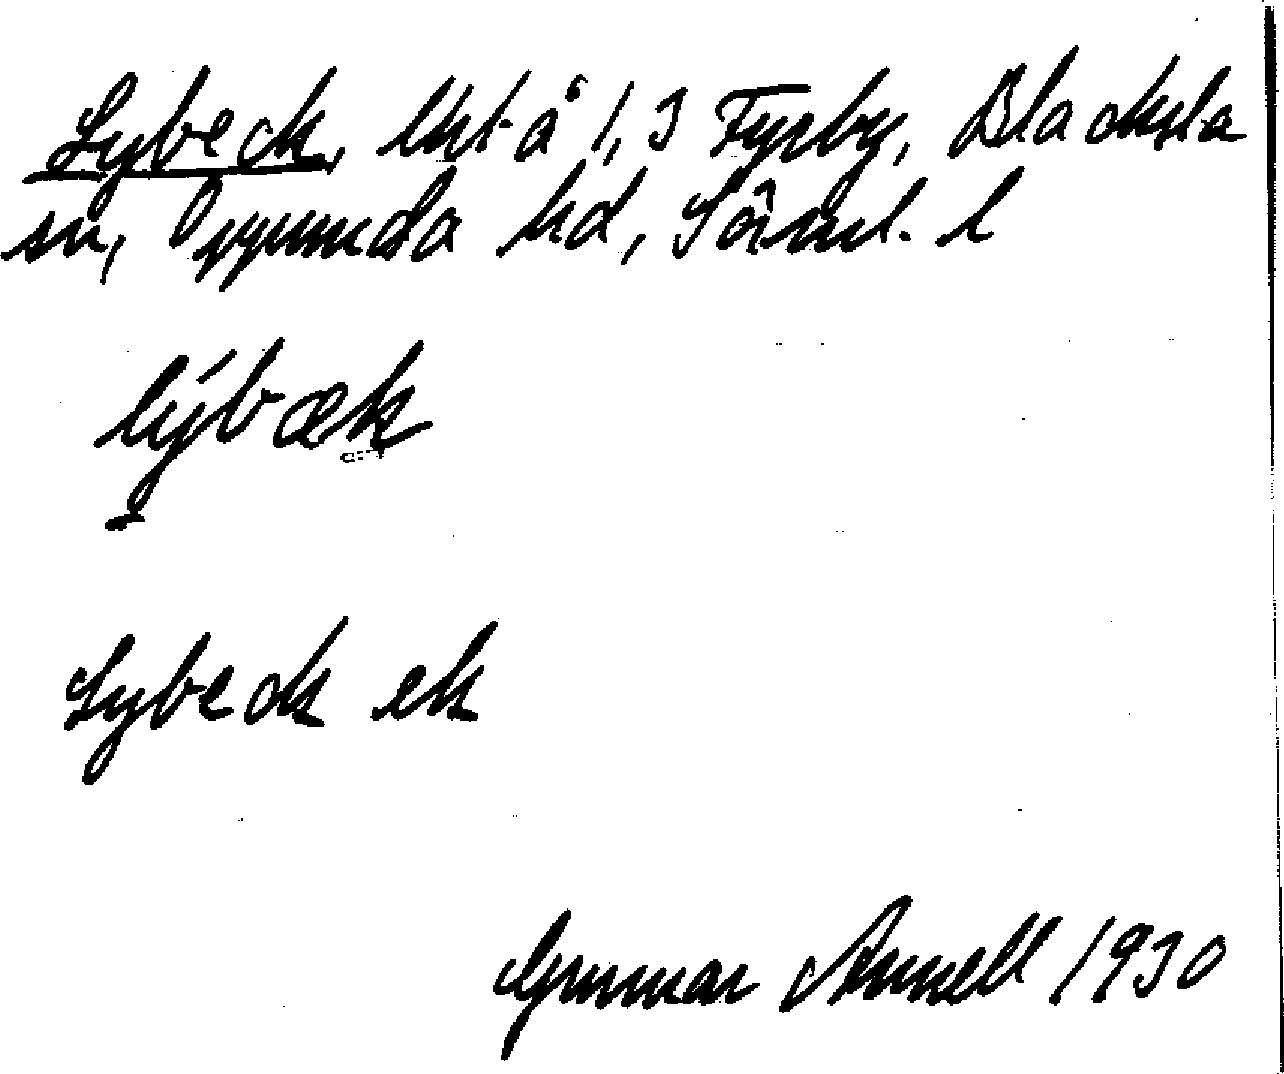 Lybeck, lht å 1,3 Fyrby, Blacksta
sn, Oppunda hd, Söderml. l
lýbæk
Lybeck ek
Gunnar Annell 1930